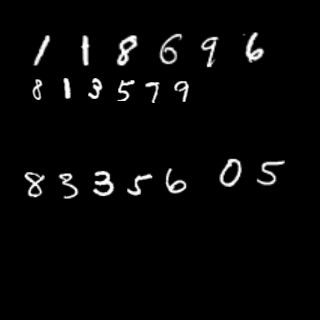 118696
813579
8335605